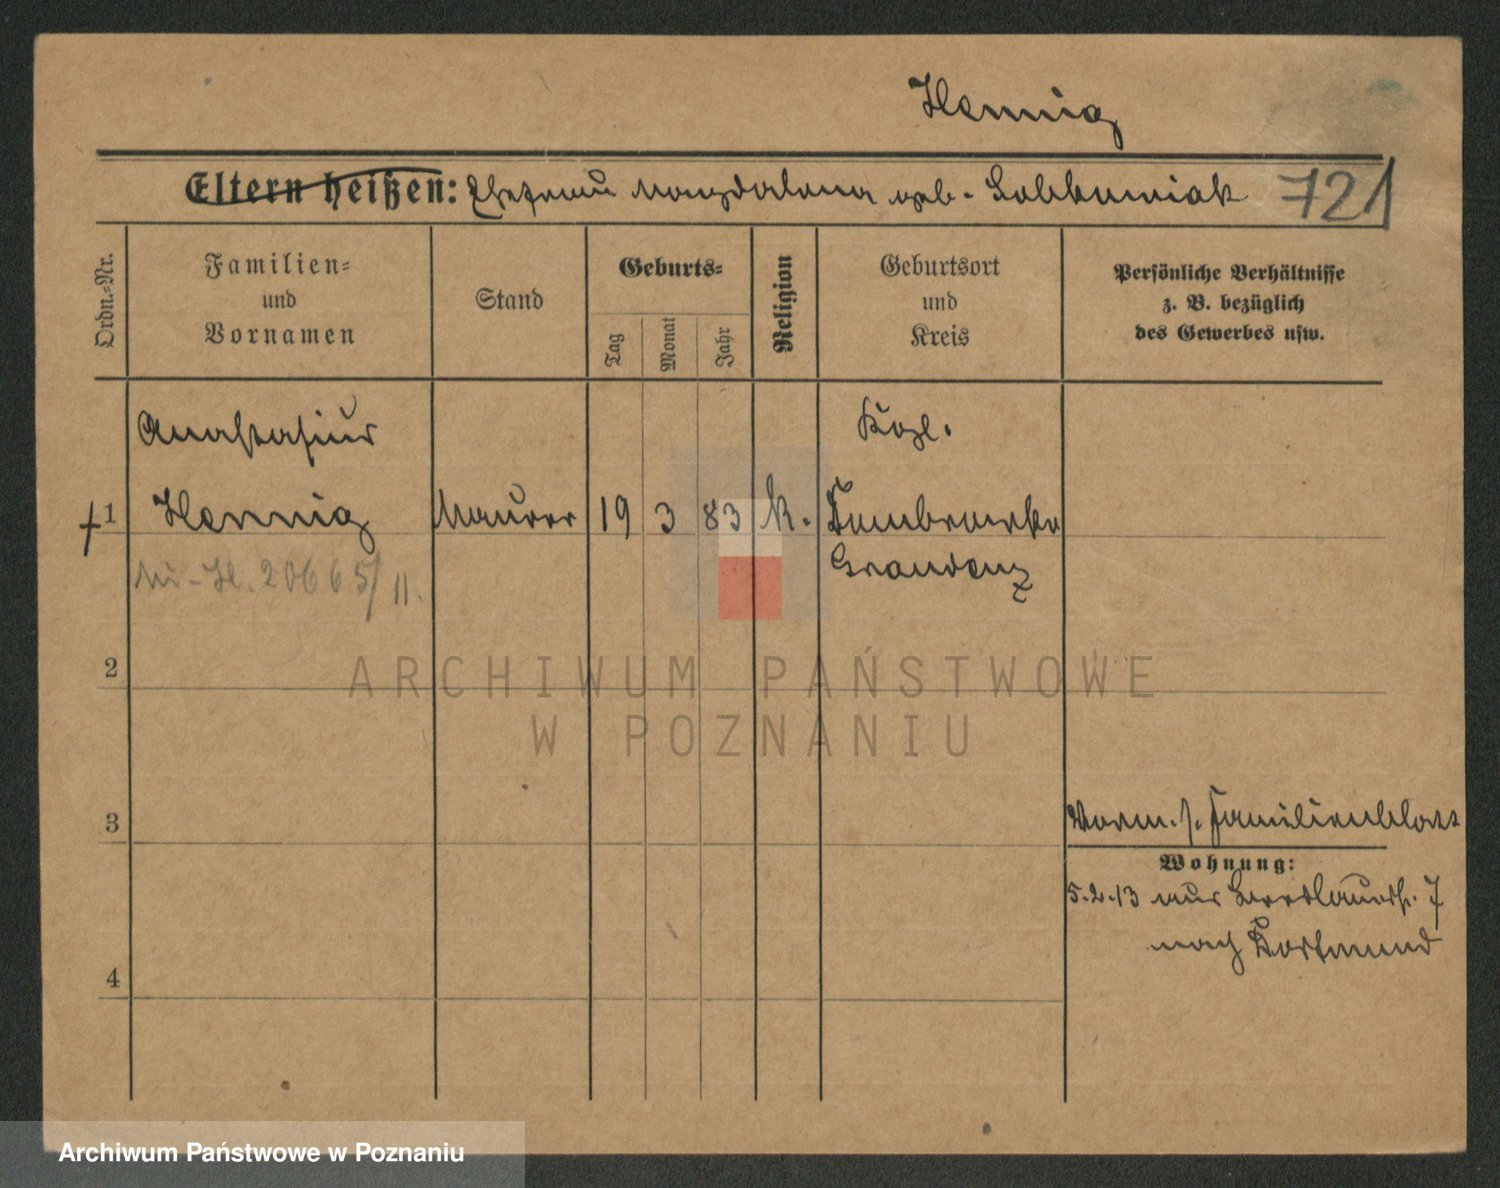 Hennig
Eltern heißen: Ehefrau Magdalena geb. 721
Ordn.-Nr.
Familien-
und
Vornamen
Stand
Geburts-
Tag
Monat
Jahr
Religion
Geburtsort
und
Kreis
Persönliche Verhältnisse
z. B. bezüglich
des Gewerbes usw.
Anastasius
Kgl.
1 Hennig Maurer 19 3 83 k. Dombrowken
Graudenz
20665/11.
2
ARCHIWUM PAŃSTWOWE
W POZNANIU
3
Verm. s. Familienblatt
Wohnung:
5.2.13 7
nach Dortmund
4
Archiwum Państwowe w Poznaniu